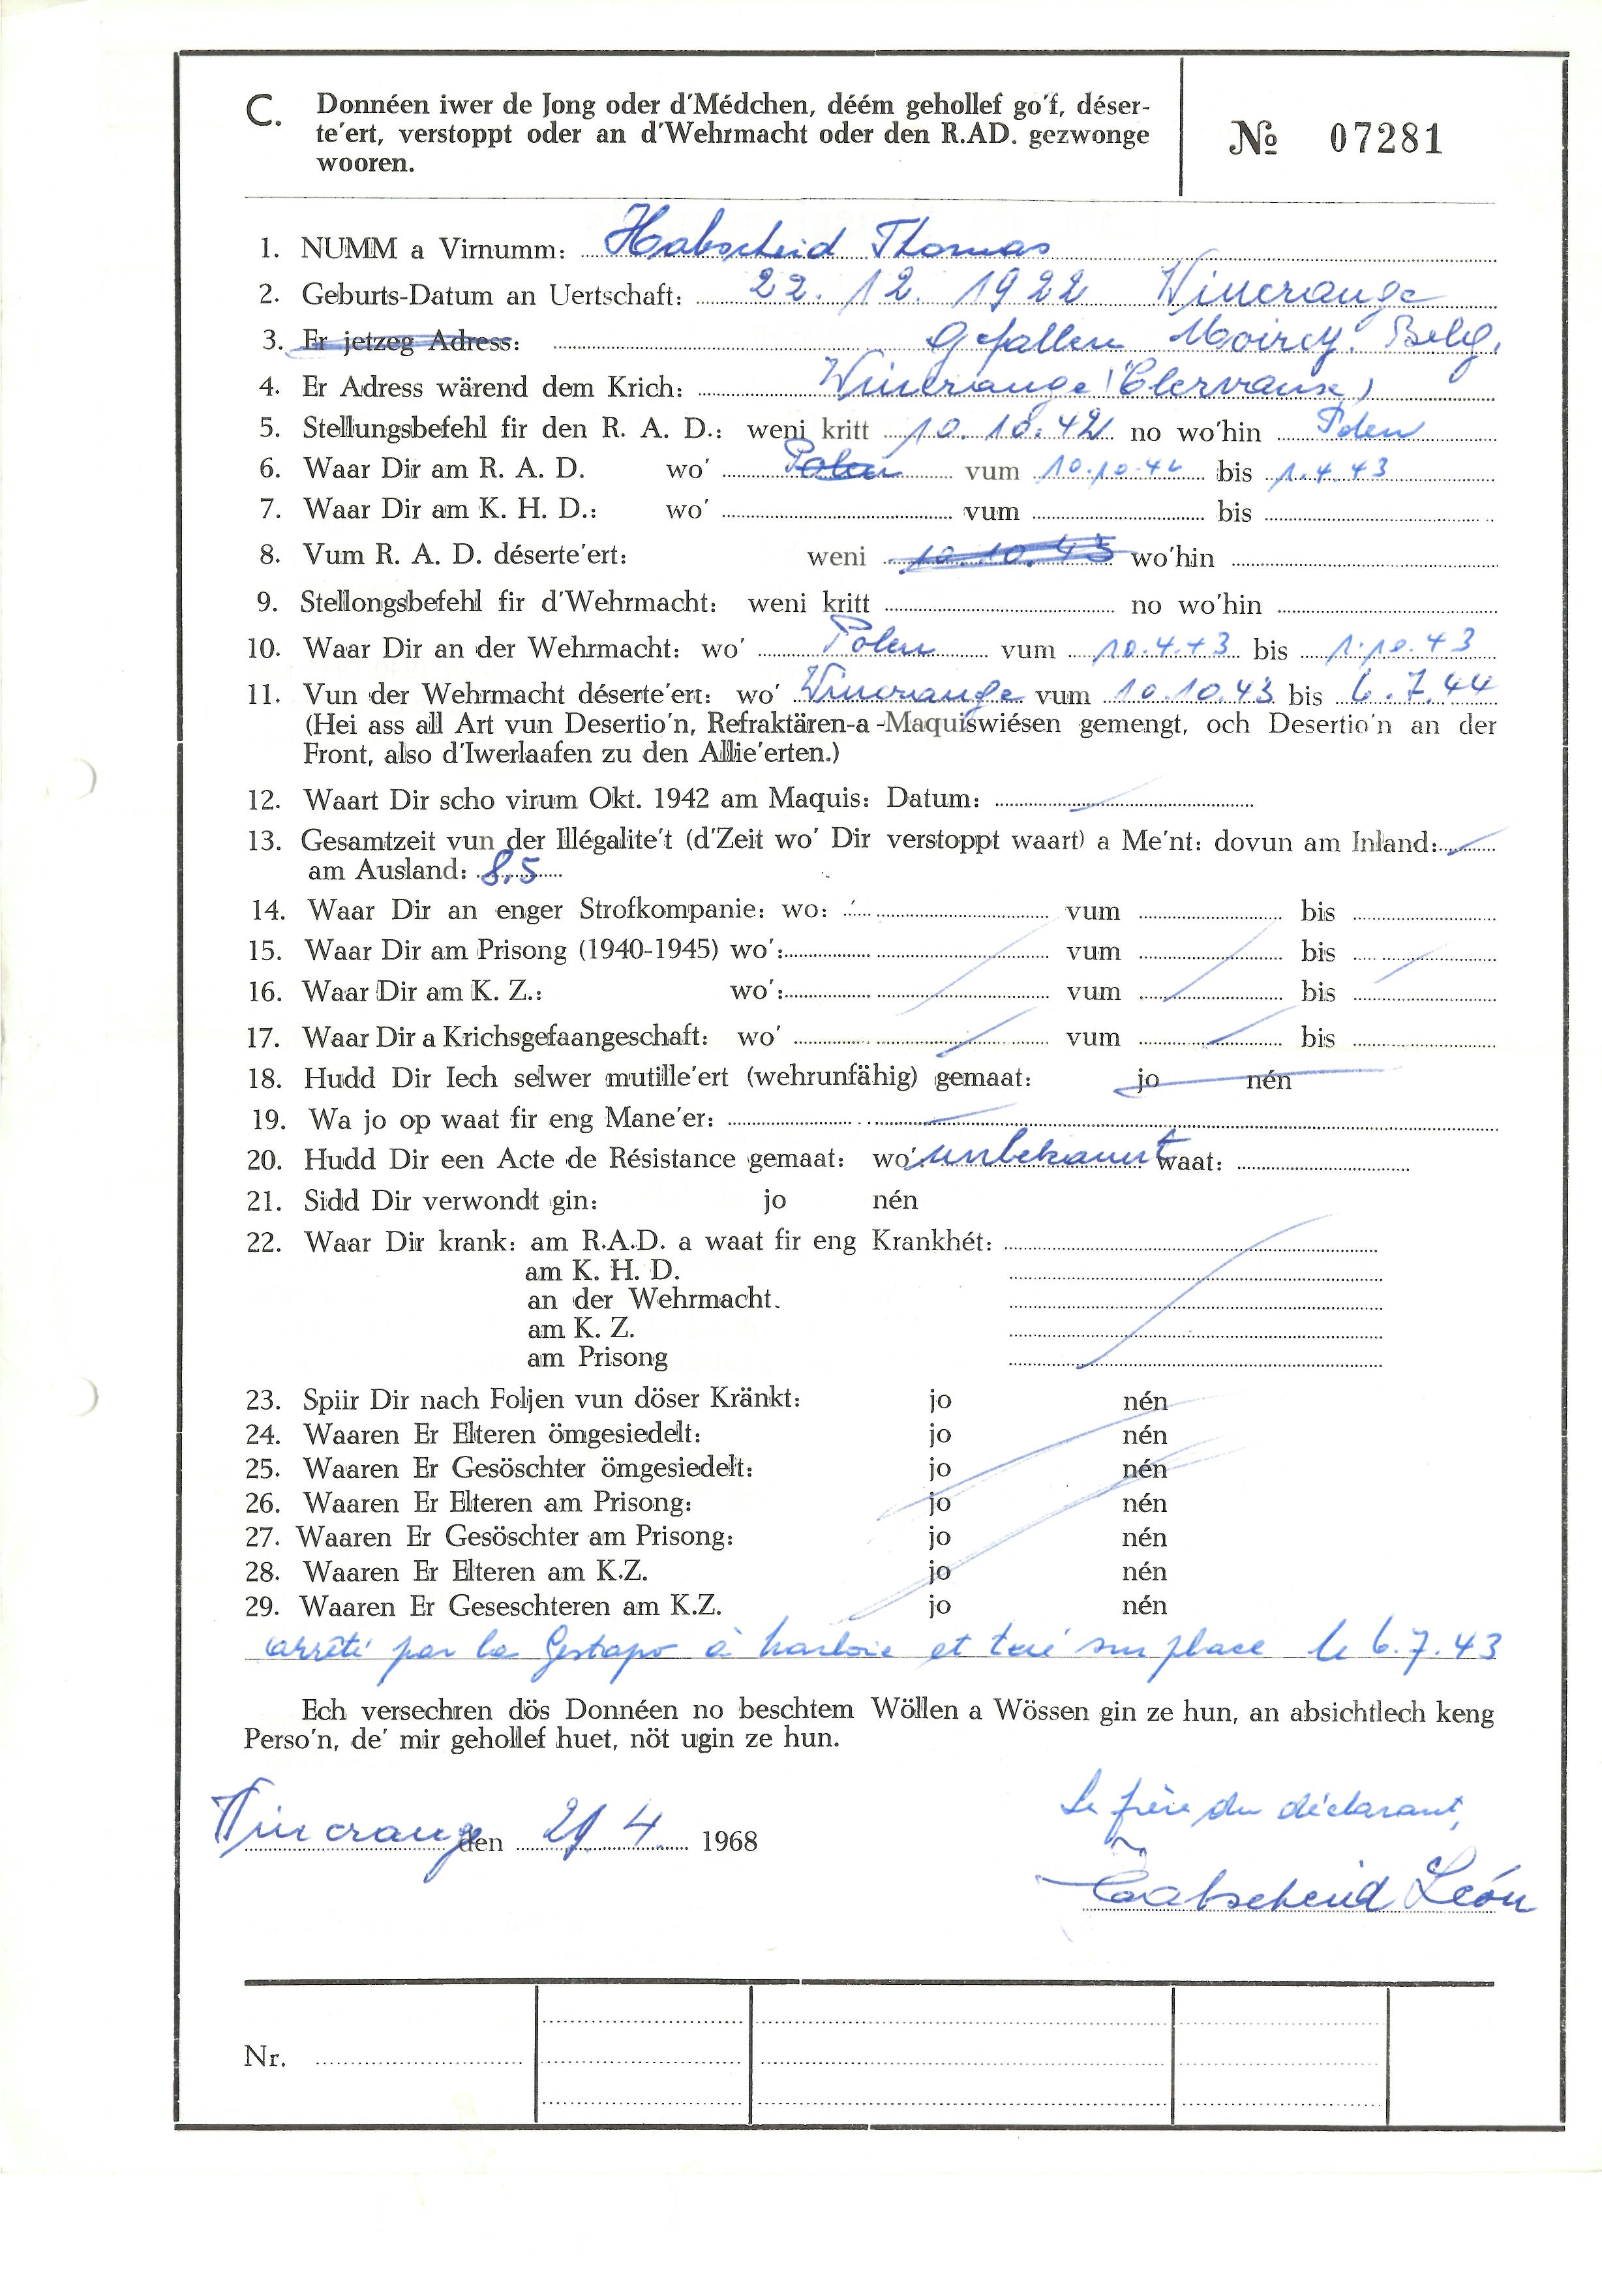 C. Donnéen iwer de Jong oder d'Médchen, déém gehollef go'f, déser-
te'ert, verstoppt oder an d'Wehrmacht oder den R.AD. gezwonge
wooren.
№ 07281
1. NUMM a Virnumm: Habscheid Thomas
2. Geburts-Datum an Uertschaft: 22. 12. 1922 Wincrange
3. Er jetzeg Adress: Gefallen Moircy. Belg.
4. Er Adress wärend dem Krich: Wincrange (Clervaux)
5. Stellungsbefehl fir den R. A. D.: weni kritt 10. 10. 42 no wo'hin Polen
6. Waar Dir am R. A. D. wo' Polen vum 10.10.42 bis 1.4.43
7. Waar Dir am K. H. D.: wo' vum bis
8. Vum R. A. D. déserte'ert: weni 10.10.43 wo'hin
9. Stellongsbefehl fir d'Wehrmacht: weni kritt no wo'hin
10. Waar Dir an der Wehrmacht: wo' Polen vum 10.4.43 bis 1.10.43
11. Vun der Wehrmacht déserte'ert: wo' Wincrange vum 10.10.43 bis 6.7.44
(Hei ass all Art vun Desertio'n, Refraktären-a -Maquiswiésen gemengt, och Desertio'n an der
Front, also d'Iwerlaafen zu den Allie'erten.)
12. Waart Dir scho virum Okt. 1942 am Maquis: Datum:
13. Gesamtzeit vun der Illégalite't (d'Zeit wo' Dir verstoppt waart) a Me'nt: dovun am Inland:
am Ausland: 8.5
14. Waar Dir an enger Strofkompanie: wo: vum bis
15. Waar Dir am Prisong (1940-1945) wo': vum bis
16. Waar Dir am K. Z.: wo': vum bis
17. Waar Dir a Krichsgefaangeschaft: wo' vum bis
18. Hudd Dir Iech selwer mutille'ert (wehrunfähig) gemaat: jo nén
19. Wa jo op waat fir eng Mane'er:
20. Hudd Dir een Acte de Résistance gemaat: wo': unbekannt waat:
21. Sidd Dir verwondt gin: jo nén
22. Waar Dir krank: am R.A.D. a waat fir eng Krankhét:
am K. H. D.
an der Wehrmacht.
am K. Z.
am Prisong
23. Spiir Dir nach Foljen vun döser Kränkt: jo nén
24. Waaren Er Elteren ömgesiedelt: jo nén
25. Waaren Er Gesöschter ömgesiedelt: jo nén
26. Waaren Er Elteren am Prisong: jo nén
27. Waaren Er Gesöschter am Prisong: jo nén
28. Waaren Er Elteren am K.Z. jo nén
29. Waaren Er Geseschteren am K.Z. jo nén
arrêté par la Gestapo à et tué sur place le 6.7.43
Ech versechren dös Donnéen no beschtem Wöllen a Wössen gin ze hun, an absichtlech keng
Perso'n, de' mir gehollef huet, nöt ugin ze hun.
Le frère du déclarant,
Wincrange den 21 4. 1968
Habscheid Léon
Nr.